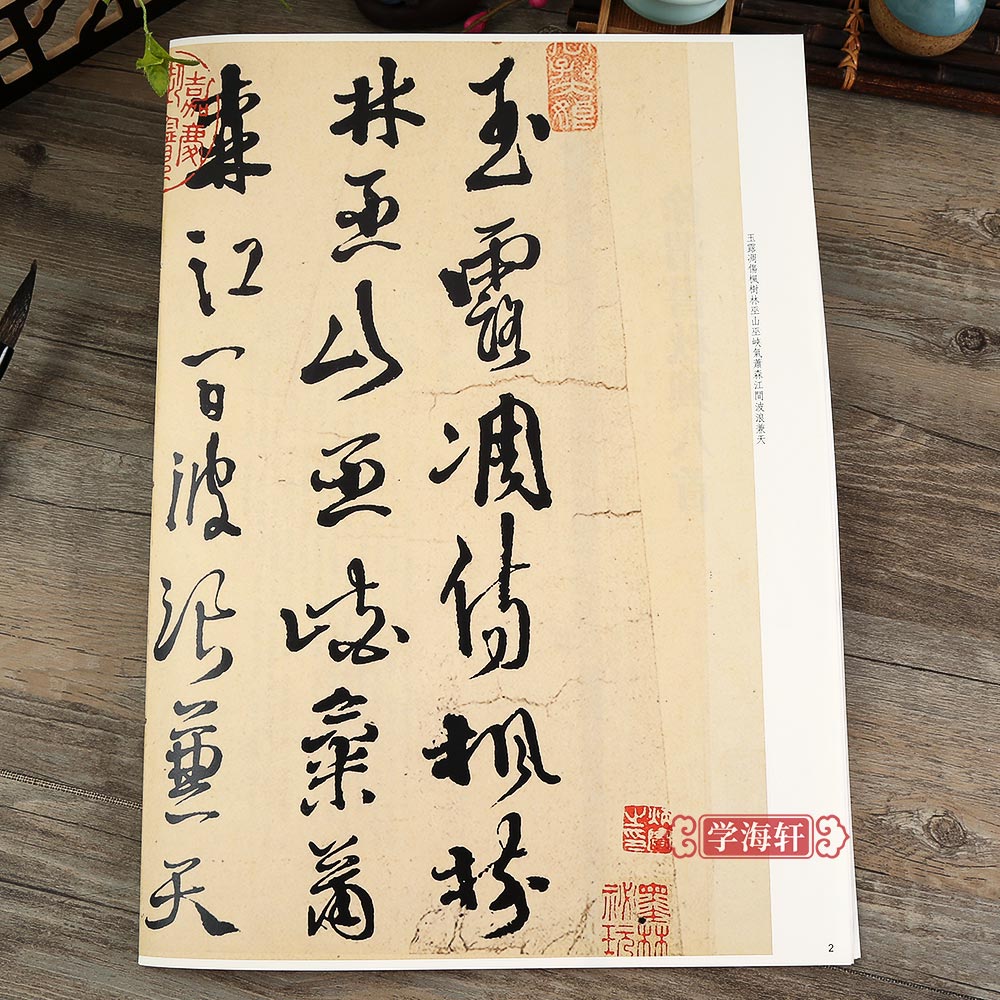 玉露凋傷楓樹
林巫山巫峽氣蕭
森江間波浪兼天
玉露凋傷楓樹林巫山巫峽氣蕭森江間波浪兼天
墨林
祕玩
学海轩
2